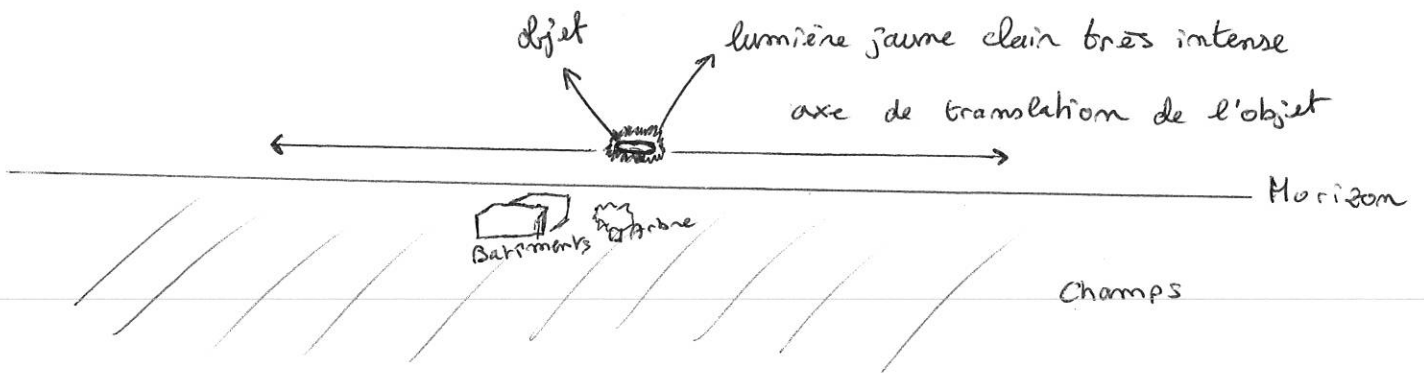 objet
lumière jaune clair très intense
axe de translation de l'objet
Horizon
Batiments
Arbre
Champs